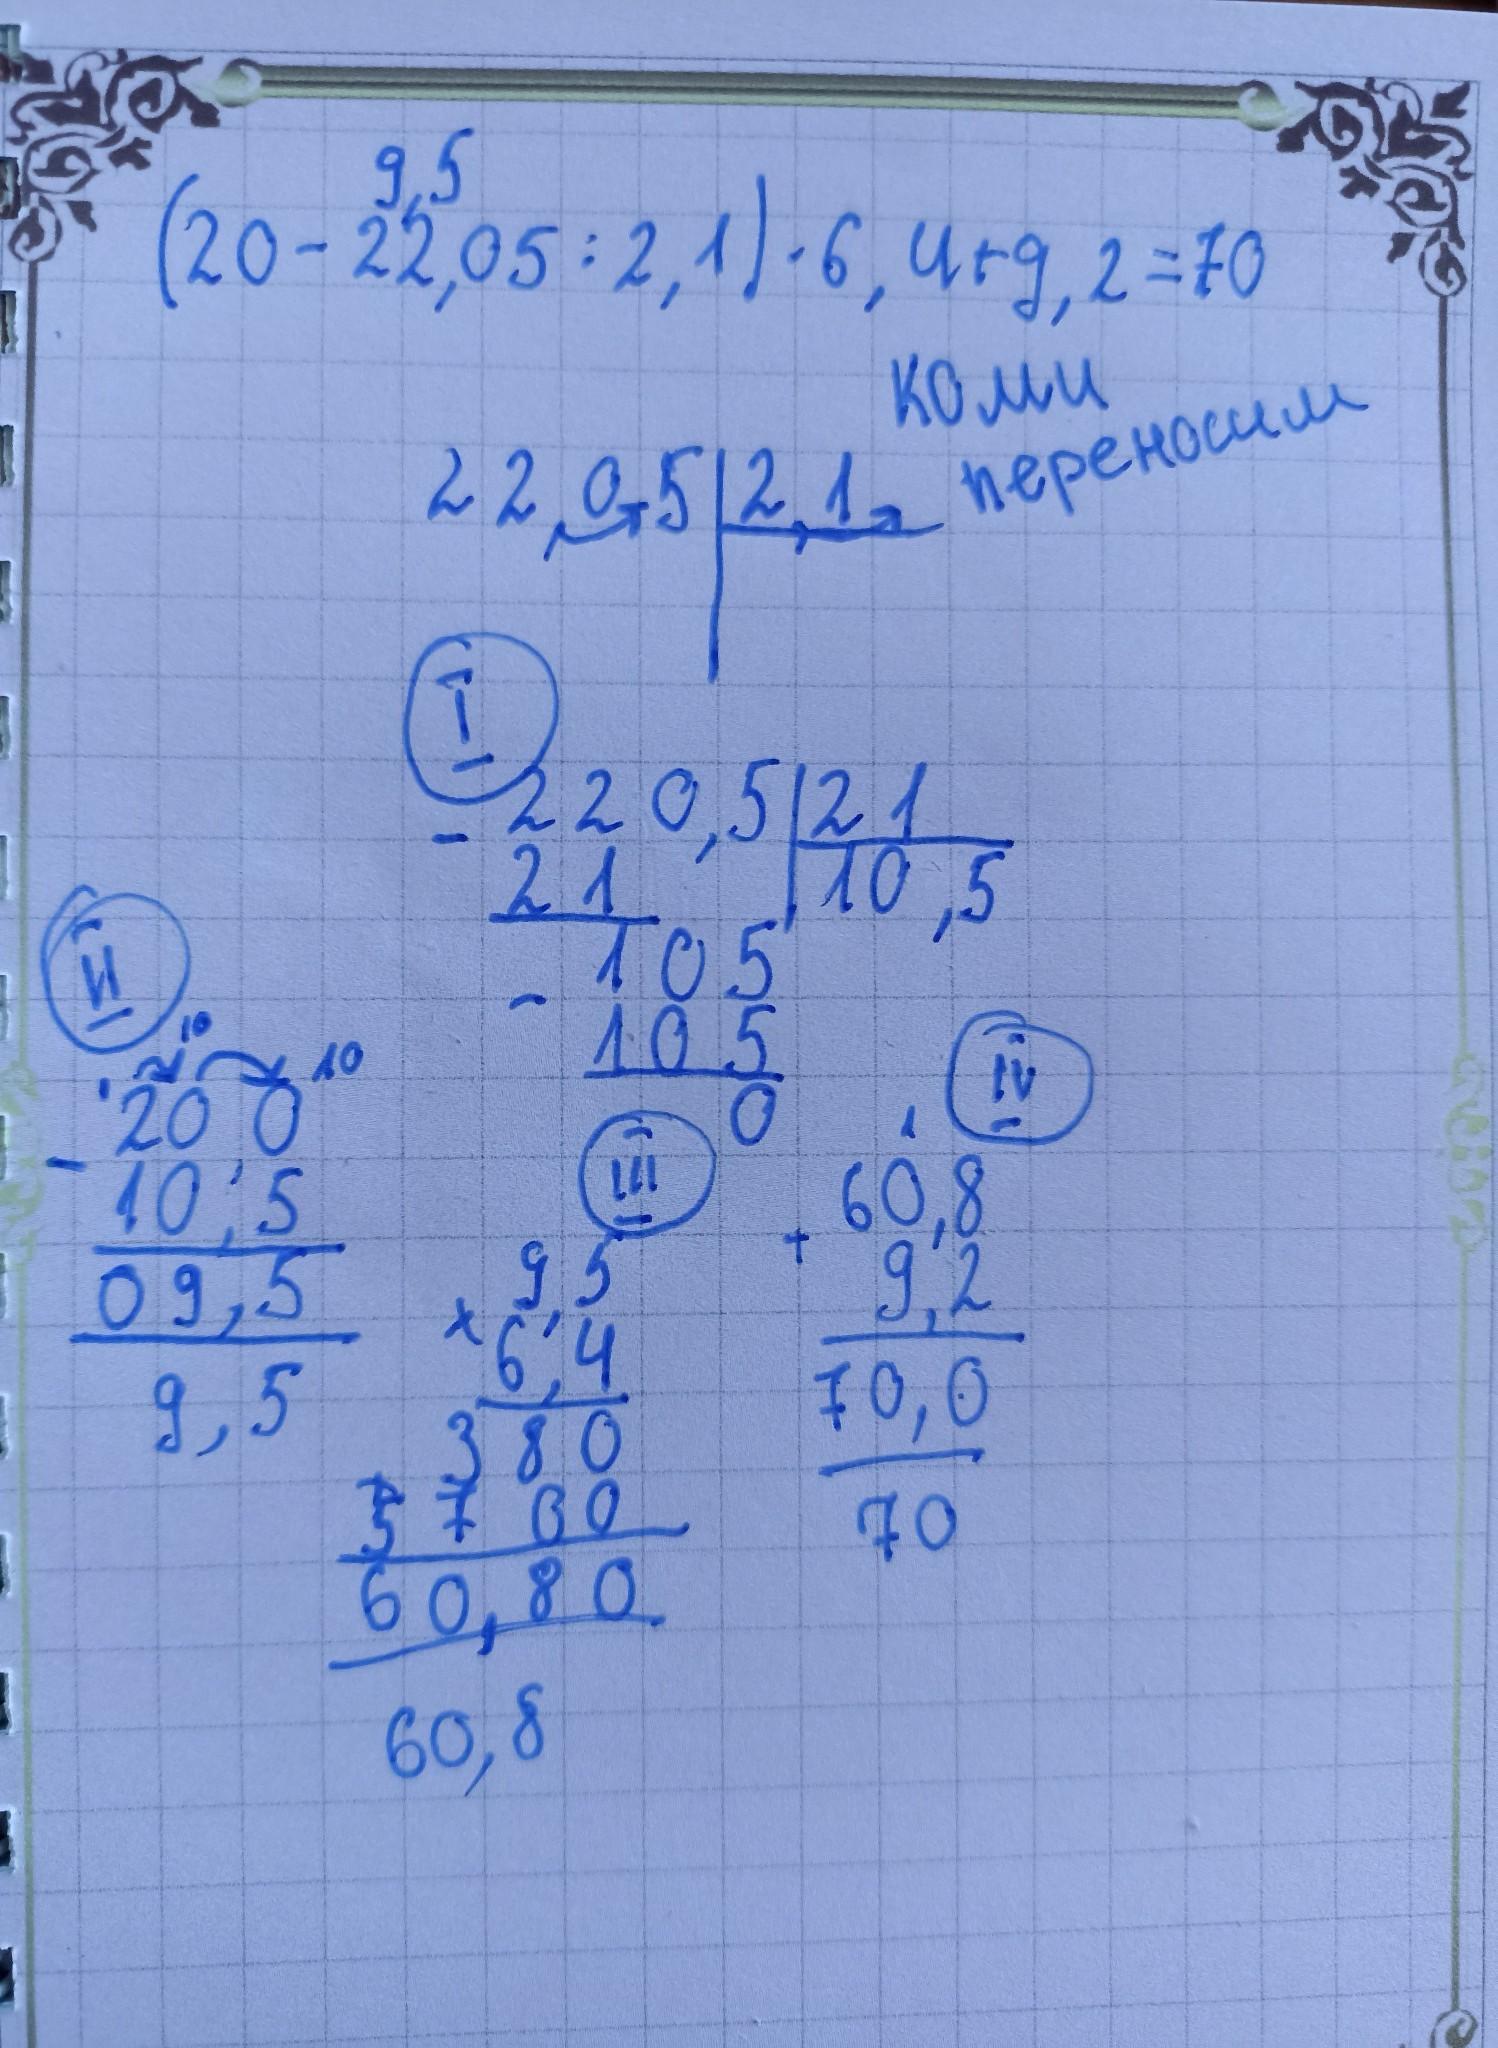 9,5
(20-22,05:2,1)·6,4+9,2=70
коми
переносим
22,05 2,1
I
220,5 21
- 21 10,5
105
- 105
0
II
10 10
200
- 10,5
09,5
9,5
III
9,5
× 6,4
380
5700
60,80
60,8
IV
1
60,8
+ 9,2
70,0
70